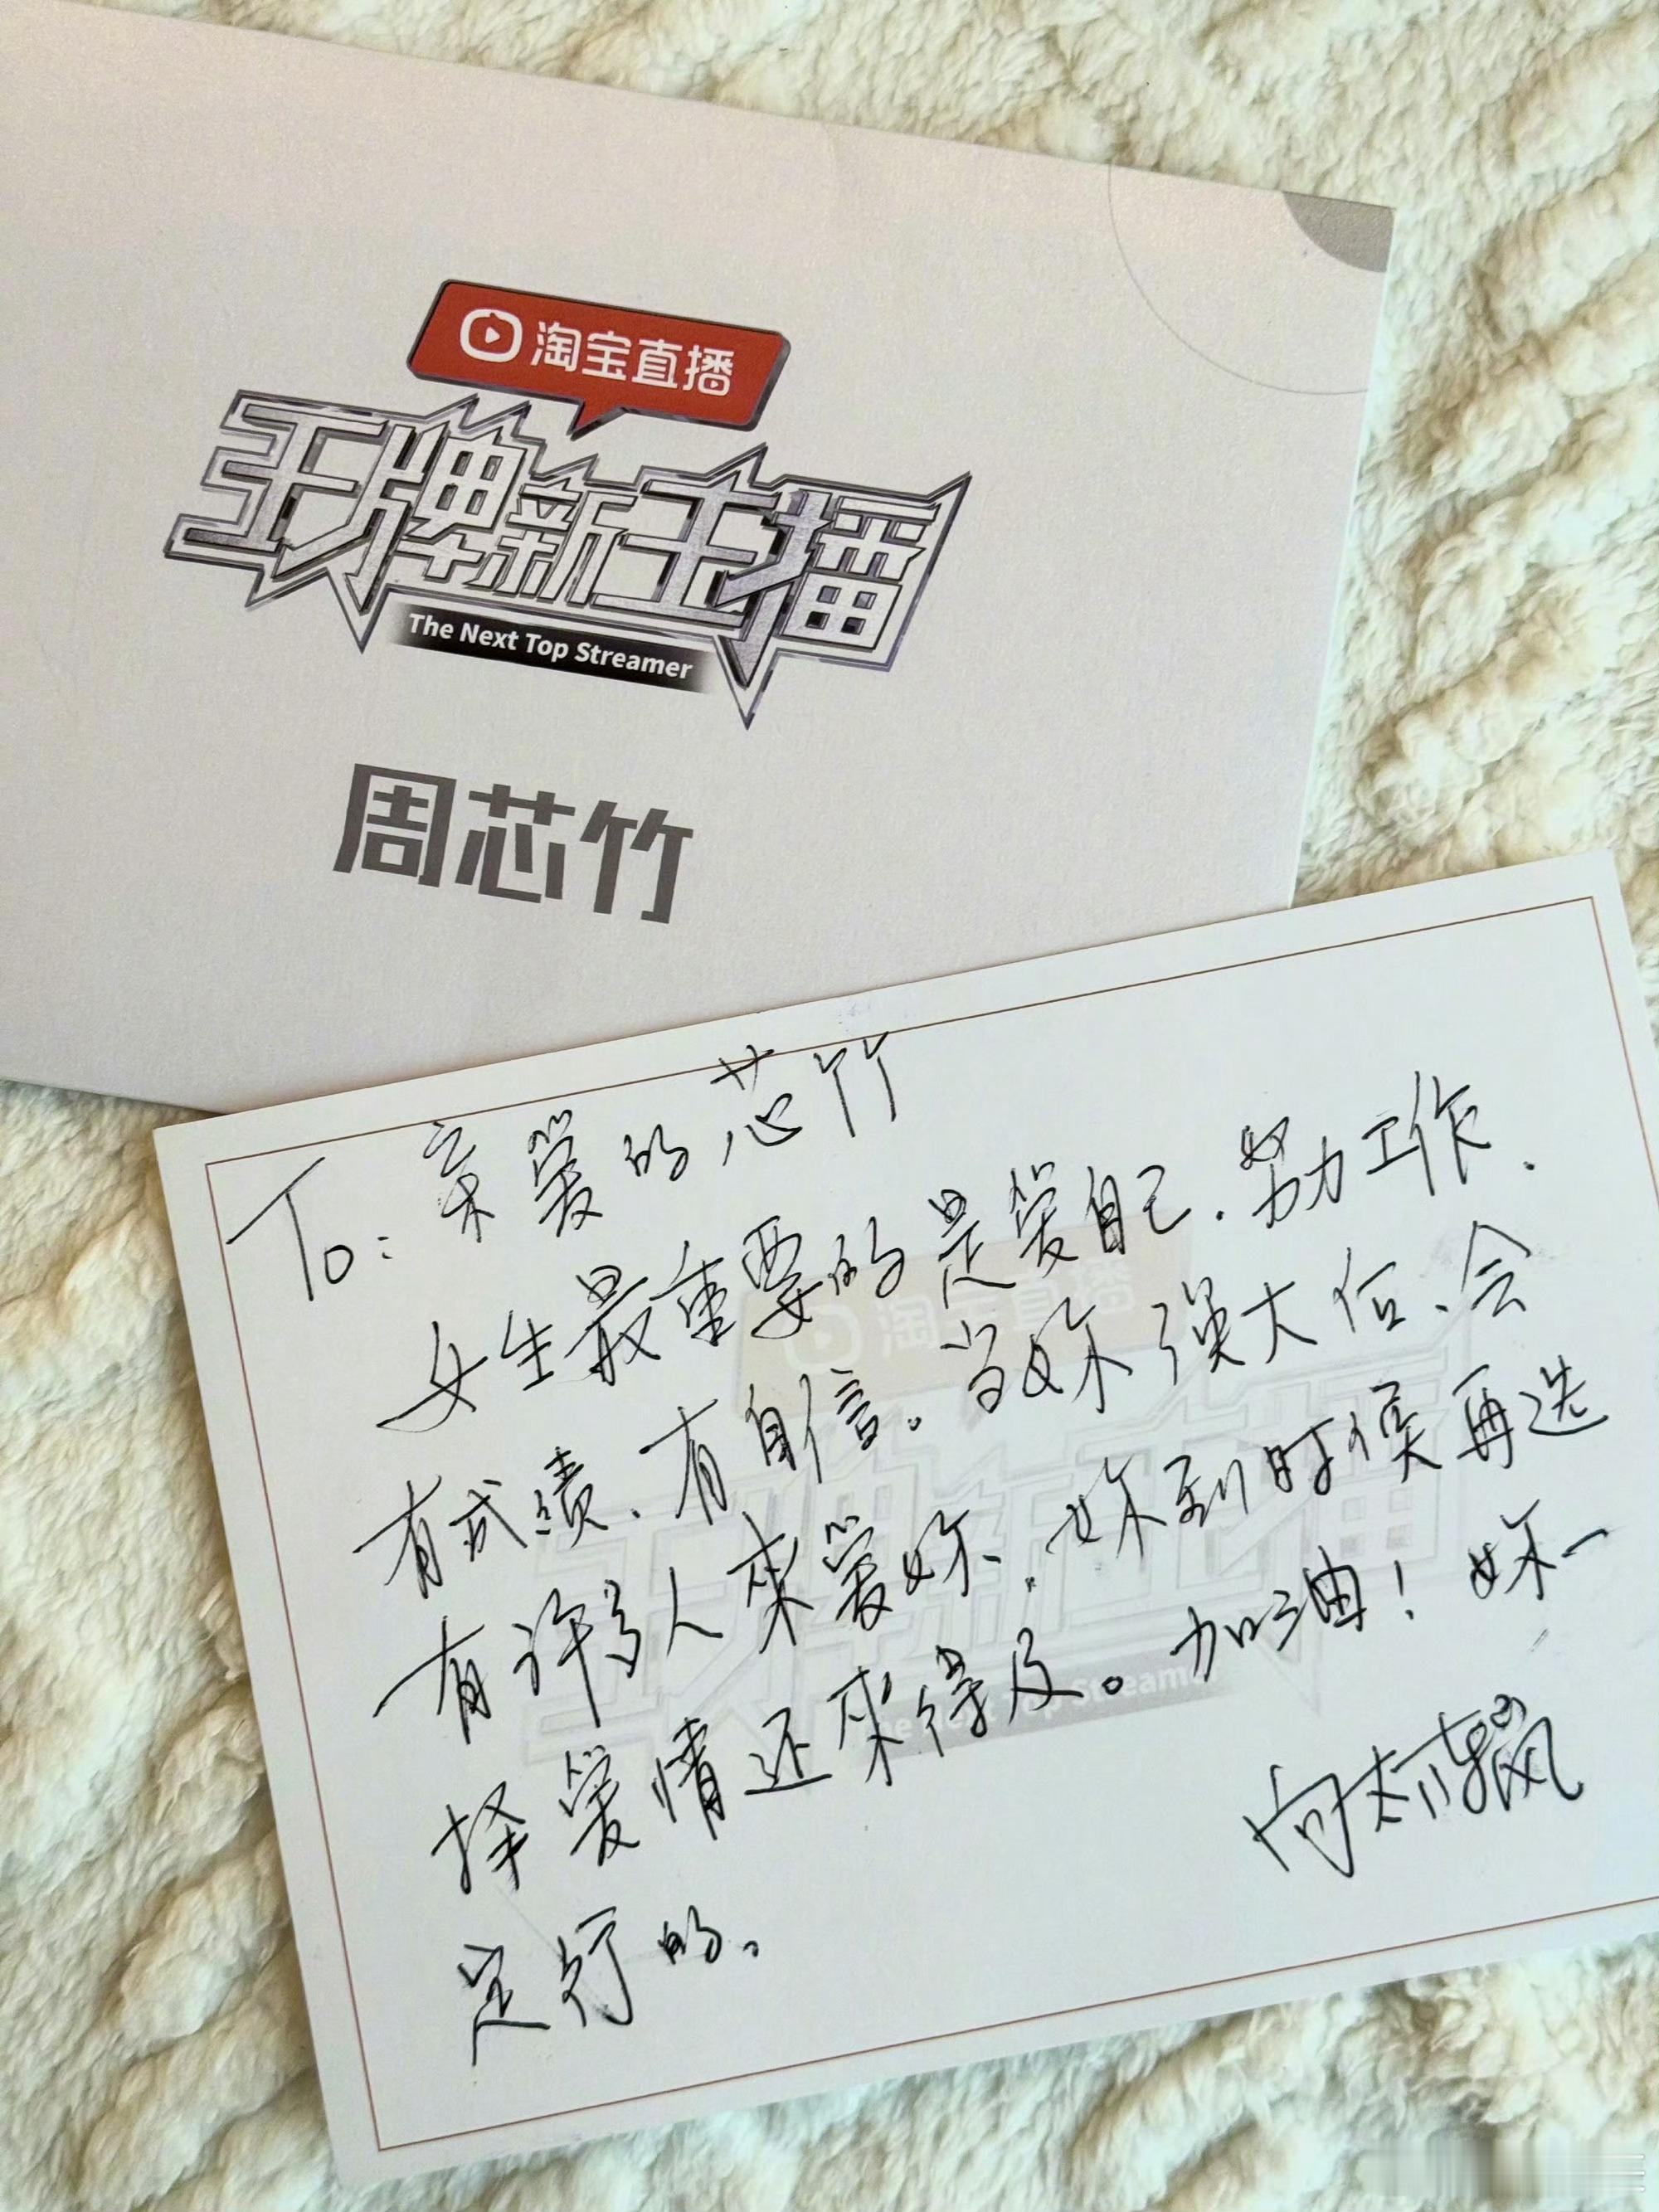 淘宝直播
王牌新主播
The Next Top Streamer
周芯竹
To: 亲爱的芯竹
女生最重要的是爱自己.努力工作.
有成绩、有自信。当妳强大后、会
有许多人来爱妳、妳到时候再选
择爱情还来得及。加油！妳一
定行的。
向太陈岚
淘宝直播
王牌新主播
The Next Top Streamer